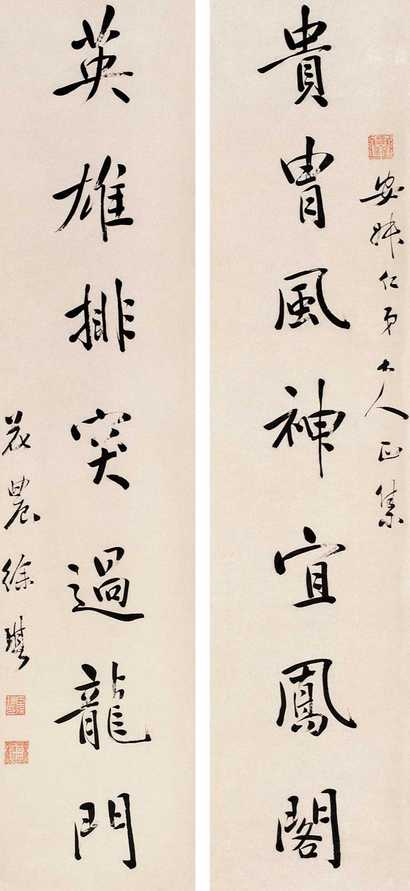 安仁弟大人正集
貴胄風神宜鳳閣
英雄排突過龍門
花農徐琪